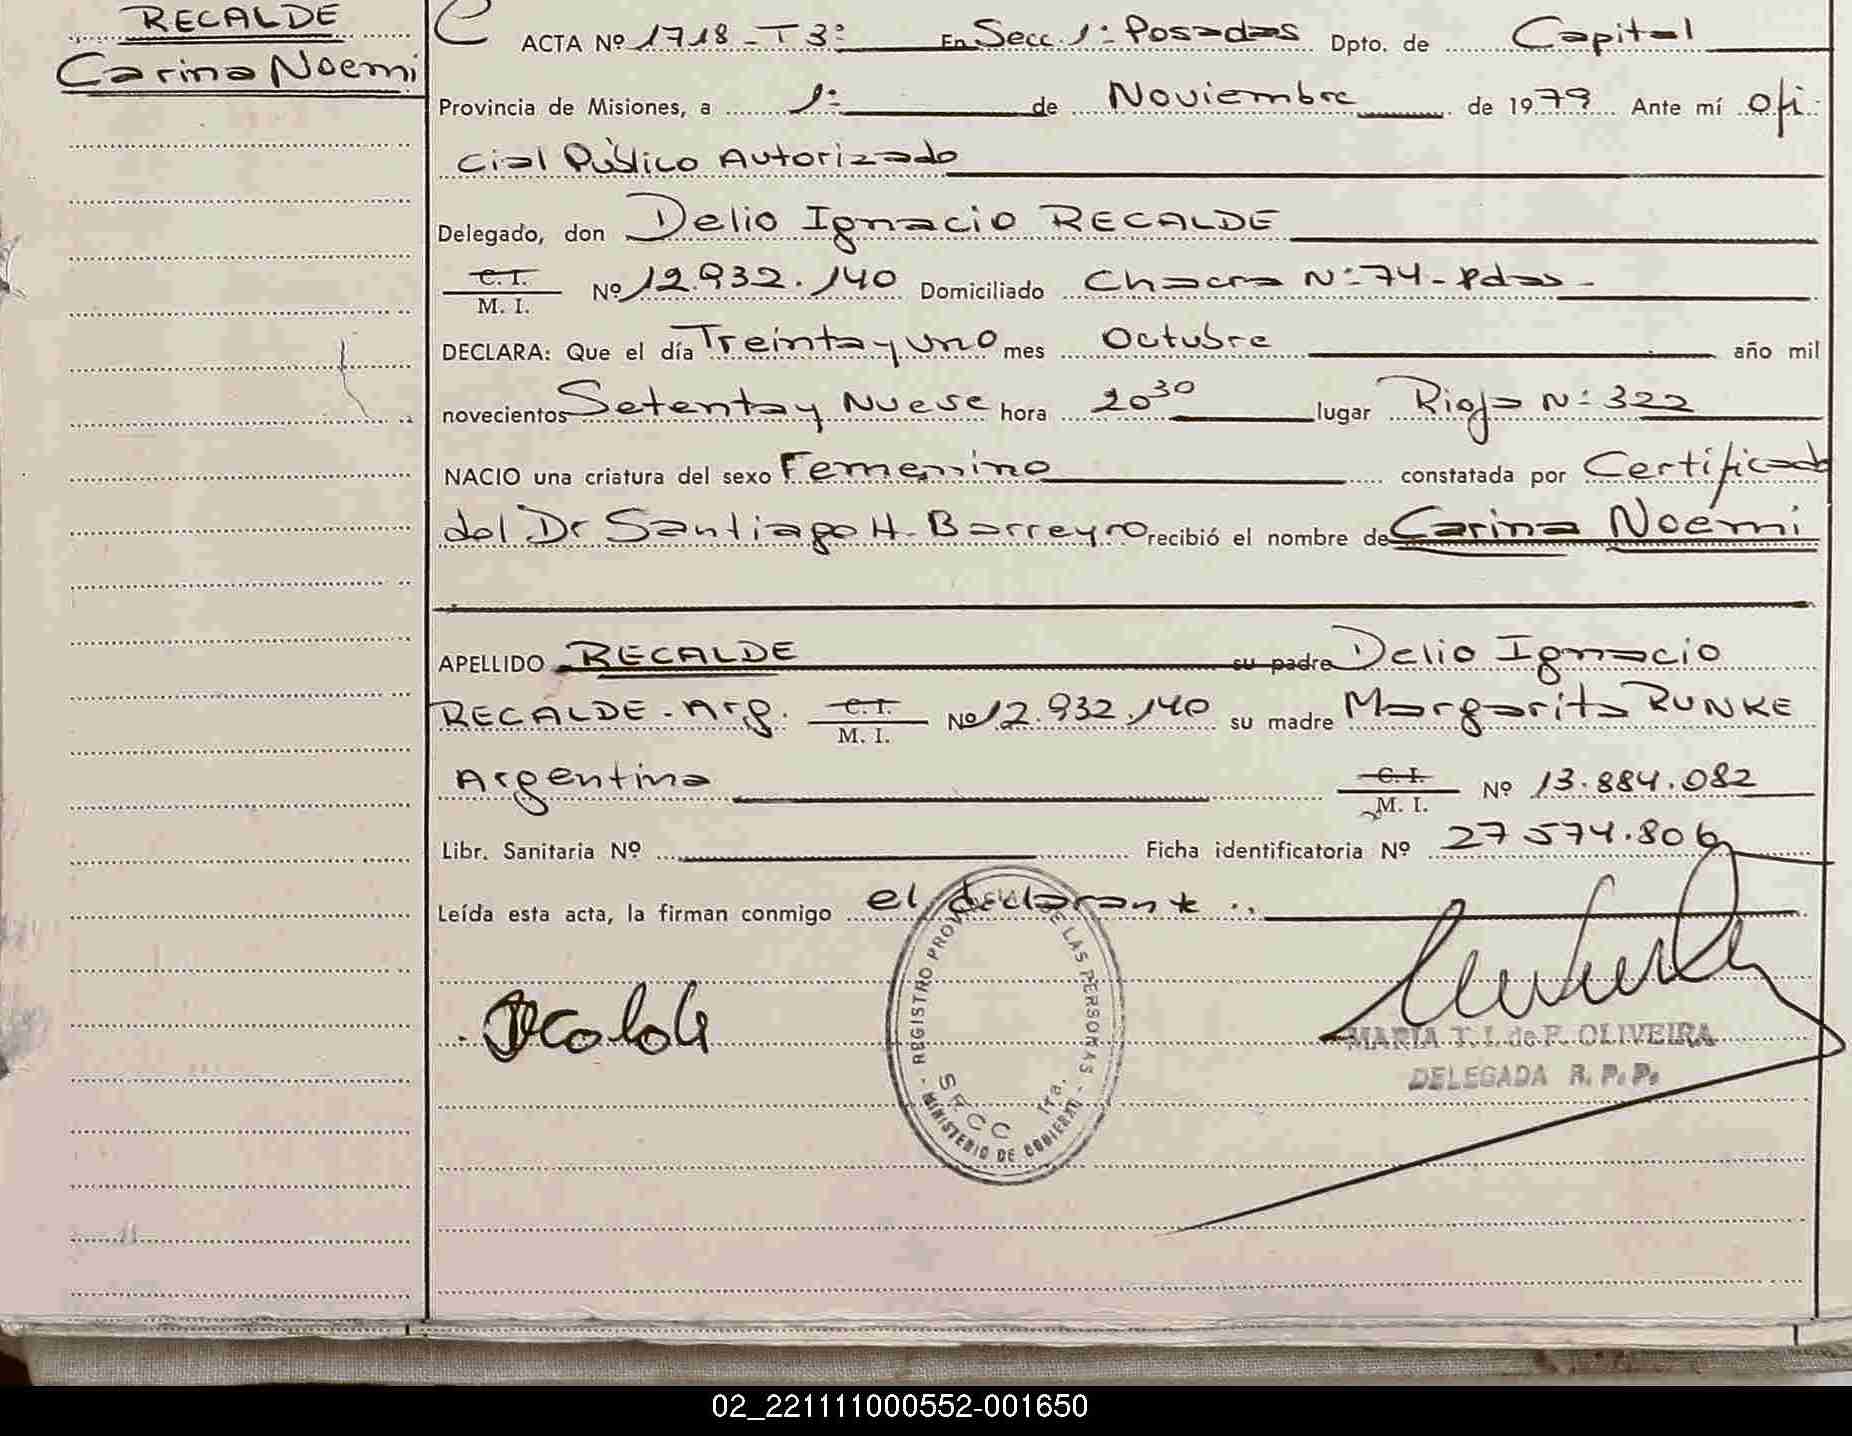 RECALDE
Carina Noemi
ACTA Nº 1718-T3º En Secc. 1º Posadas Dpto. de Capital
Provincia de Misiones, a 1º de Noviembre de 1979 Ante mí Ofi
cial Público Autorizado
Delegado, don Delio Ignacio RECALDE
C. I.
M. I. Nº 12.932.140 Domiciliado Chacra Nº 74-Pdas-
DECLARA: Que el día Treinta y uno mes Octubre año mil
novecientos Setenta y Nueve hora 20 30 lugar Rioja Nº 322
NACIO una criatura del sexo Femenino constatada por Certificado
del Dr Santiago H. Barreyro recibió el nombre de Carina Noemi
APELLIDO RECALDE su padre Delio Ignacio
RECALDE-Arg. C. I. M. I. Nº 12.932.140 su madre Margarita RUNKE
Argentina C. I. M. I. Nº 13.884.082
Libr. Sanitaria Nº Ficha identificatoria Nº 27 574.806
Leída esta acta, la firman conmigo el declarante..
REGISTRO PROV DE LAS PERSONAS - MINISTERIO DE GOBIERNO -
SECC 1ra.
MARIA T. I. de F. OLIVEIRA
DELEGADA R. P. P.
02_221111000552-001650